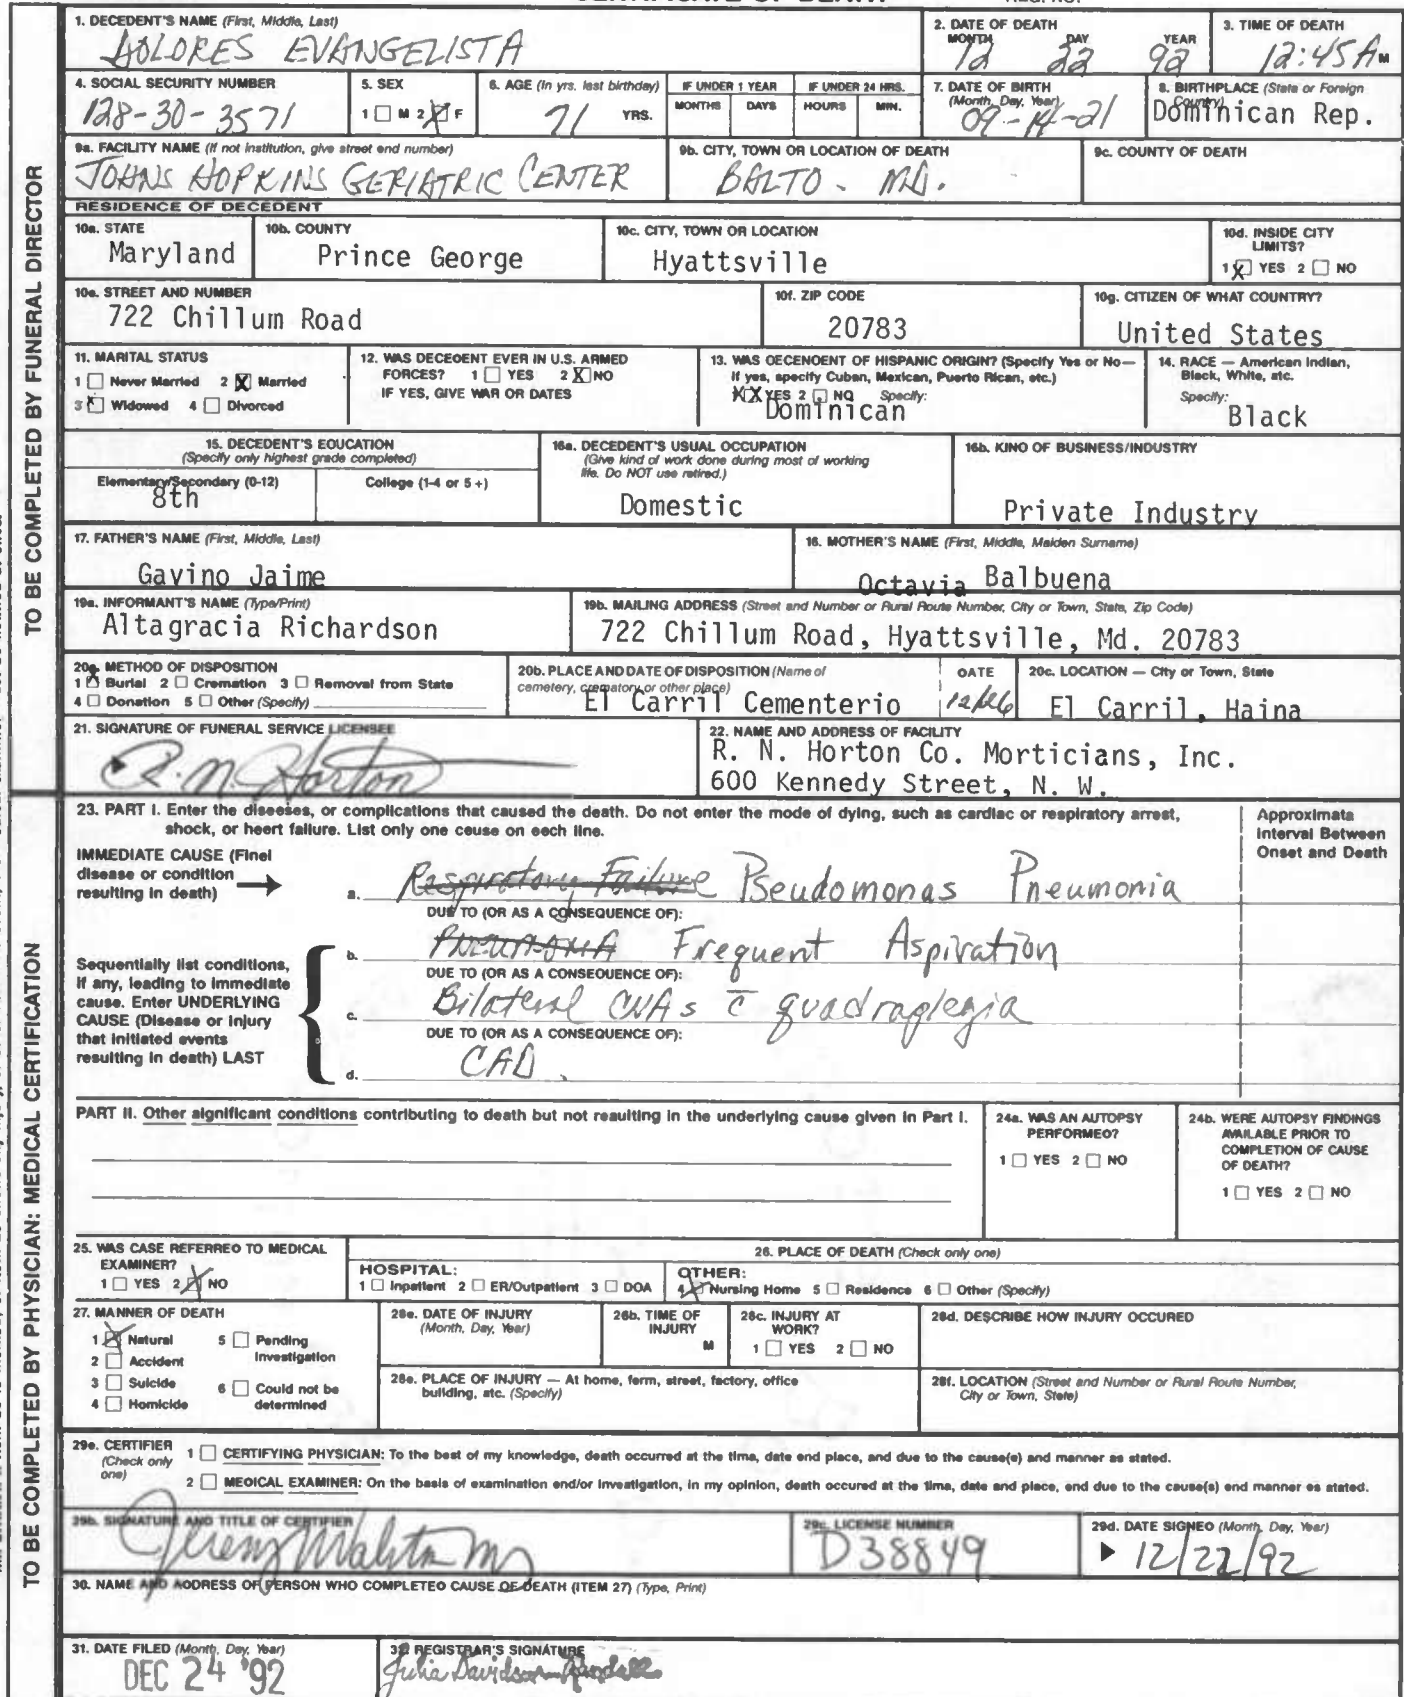 1. DECEDENT'S NAME (First, Middle, Last)
DOLORES EVANGELISTA
2. DATE OF DEATH
MONTH DAY YEAR
12 22 92
3. TIME OF DEATH
12:45 A M
4. SOCIAL SECURITY NUMBER
128-30-3571
5. SEX
1 ☐ M 2 ☒ F
6. AGE (In yrs. last birthday)
71 YRS.
IF UNDER 1 YEAR
MONTHS DAYS
IF UNDER 24 HRS.
HOURS MIN.
7. DATE OF BIRTH
(Month, Day, Year)
09-14-21
8. BIRTHPLACE (State or Foreign
Country)
Dominican Rep.
9a. FACILITY NAME (If not institution, give street end number)
JOHNS HOPKINS GERIATRIC CENTER
9b. CITY, TOWN OR LOCATION OF DEATH
BALTO. MD.
9c. COUNTY OF DEATH
RESIDENCE OF DECEDENT
10a. STATE
Maryland
10b. COUNTY
Prince George
10c. CITY, TOWN OR LOCATION
Hyattsville
10d. INSIDE CITY
LIMITS?
1 ☒ YES 2 ☐ NO
10e. STREET AND NUMBER
722 Chillum Road
10f. ZIP CODE
20783
10g. CITIZEN OF WHAT COUNTRY?
United States
11. MARITAL STATUS
1 ☐ Never Married 2 ☒ Married
3 ☒ Widowed 4 ☐ Divorced
12. WAS DECEOENT EVER IN U.S. ARMED
FORCES? 1 ☐ YES 2 ☒ NO
IF YES, GIVE WAR OR DATES
13. WAS OECENOENT OF HISPANIC ORIGIN? (Specify Yes or No—
If yes, specify Cuban, Mexican, Puerto Rican, etc.)
XX YES 2 ☐ NO Specify:
Dominican
14. RACE — American Indian,
Black, White, atc.
Specify:
Black
15. DECEDENT'S EOUCATION
(Specify only highest grade completed)
Elementary/Secondary (0-12)
8th
College (1-4 or 5+)
16a. DECEDENT'S USUAL OCCUPATION
(Give kind of work done during most of working
life. Do NOT use retired.)
Domestic
16b. KINO OF BUSINESS/INDUSTRY
Private Industry
17. FATHER'S NAME (First, Middle, Last)
Gavino Jaime
16. MOTHER'S NAME (First, Middle, Maiden Surname)
Octavia Balbuena
19a. INFORMANT'S NAME (Type/Print)
Altagracia Richardson
19b. MAILING ADDRESS (Street and Number or Rural Route Number, City or Town, State, Zip Code)
722 Chillum Road, Hyattsville, Md. 20783
20a. METHOD OF DISPOSITION
1 ☒ Burial 2 ☐ Cremation 3 ☐ Removal from State
4 ☐ Donation 5 ☐ Other (Specify)
20b. PLACE AND DATE OF DISPOSITION (Name of
cemetery, crematory or other place)
El Carril Cementerio
OATE
12/26
20c. LOCATION — City or Town, State
El Carril, Haina
21. SIGNATURE OF FUNERAL SERVICE LICENSEE
R. N. Horton
22. NAME AND ADDRESS OF FACILITY
R. N. Horton Co. Morticians, Inc.
600 Kennedy Street, N. W.
TO BE COMPLETED BY FUNERAL DIRECTOR
23. PART I. Enter the diseeses, or complications that caused the death. Do not enter the mode of dying, such as cardiac or respiratory arrest,
shock, or heert failure. List only one ceuse on eech line.
Approximata
Interval Between
Onset and Death
IMMEDIATE CAUSE (Finel
disease or condition
resulting in death)
a. Respiratory Failure Pseudomonas Pneumonia
DUE TO (OR AS A CONSEQUENCE OF):
b. Pneumonia Frequent Aspiration
DUE TO (OR AS A CONSEQUENCE OF):
c. Bilateral CVAs c̄ quadraplegia
DUE TO (OR AS A CONSEQUENCE OF):
d. CAD.
Sequentially list conditions,
if any, leading to immediate
cause. Enter UNDERLYING
CAUSE (Disease or Injury
that initiated events
resulting in death) LAST
PART II. Other aignificant conditions contributing to death but not reaulting in the underlying cause given in Part I.
24a. WAS AN AUTOPSY
PERFORMEO?
1 ☐ YES 2 ☐ NO
24b. WERE AUTOPSY FINDINGS
AVAILABLE PRIOR TO
COMPLETION OF CAUSE
OF DEATH?
1 ☐ YES 2 ☐ NO
25. WAS CASE REFERREO TO MEDICAL
EXAMINER?
1 ☐ YES 2 ☒ NO
26. PLACE OF DEATH (Check only one)
HOSPITAL:
1 ☐ Inpatient 2 ☐ ER/Outpatient 3 ☐ DOA
OTHER:
4 ☒ Nursing Home 5 ☐ Residence 6 ☐ Other (Specify)
27. MANNER OF DEATH
1 ☒ Natural 5 ☐ Pending
Investigation
2 ☐ Accident
3 ☐ Suicide 6 ☐ Could not be
determined
4 ☐ Homicide
28e. DATE OF INJURY
(Month, Day, Year)
26b. TIME OF
INJURY
M
28c. INJURY AT
WORK?
1 ☐ YES 2 ☐ NO
28d. DESCRIBE HOW INJURY OCCURED
28e. PLACE OF INJURY — At home, ferm, street, factory, office
building, atc. (Specify)
28f. LOCATION (Street and Number or Rural Route Number,
City or Town, State)
29e. CERTIFIER
(Check only
one)
1 ☐ CERTIFYING PHYSICIAN: To the best of my knowledge, death occurred at the tima, date end place, and due to the cause(e) and manner as stated.
2 ☐ MEOICAL EXAMINER: On the basis of examination end/or Investigation, in my opinion, death occured at the tima, date and place, end due to the cause(s) end manner es stated.
29b. SIGNATURE AND TITLE OF CERTIFIER
Jeremy Walston MD
29c. LICENSE NUMBER
D38849
29d. DATE SIGNEO (Month, Day, Year)
12/22/92
30. NAME AND AODRESS OF PERSON WHO COMPLETEO CAUSE OF DEATH (ITEM 27) (Type, Print)
31. DATE FILED (Month, Day, Year)
DEC 24 '92
32. REGISTRAR'S SIGNATURE
Julia Davidson-Randall
TO BE COMPLETED BY PHYSICIAN: MEDICAL CERTIFICATION